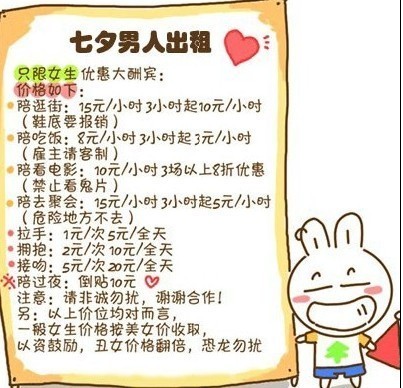 七夕男人出租
只限女生 优惠大酬宾：
价格如下：
陪逛街：15元/小时 3小时起10元/小时
（鞋底要报销）
陪吃饭：8元/小时 3小时起3元/小时
（雇主请客制）
陪看电影：10元/小时 3场以上8折优惠
（禁止看鬼片）
陪去聚会：15元/小时 3小时起5元/小时
（危险地方不去）
拉手：1元/次 5元/全天
拥抱：2元/次 10元/全天
接吻：5元/次 20元/全天
※陪过夜：倒贴10元
注意：请非诚勿扰，谢谢合作！
另：以上价位均对而言，
一般女生价格按美女价收取，
以资鼓励，丑女价格翻倍，恐龙勿扰